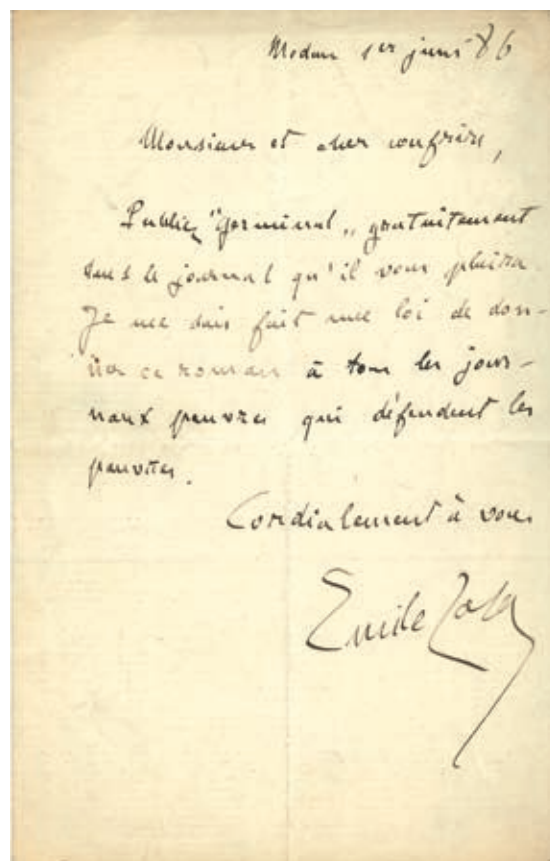 Medan 1er juin 86
Monsieur et cher confrère,
Publiez "Germinal" gratuitement
dans le journal qu'il vous plaira.
Je me suis fait une loi de don-
ner ce roman à tous les jour-
naux pauvres qui défendent les
pauvres.
Cordialement à vous
Emile Zola